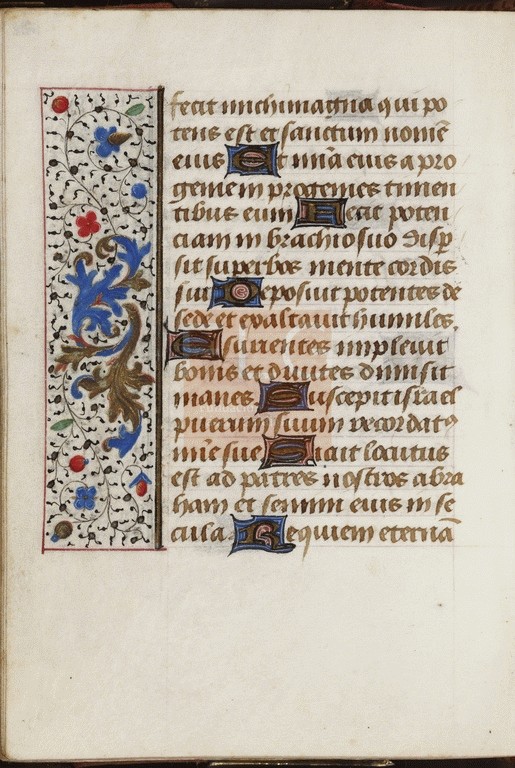 fecit michi magna qui po
tens est et sanctum nomē
eius Et mīa eius a pro
genie in progenies timen
tibus eum Fecit poten
ciam in brachio suo disp̄
sit superbos mente cordis
sui Deposuit potentes de
sede et exaltauit humiles
Esurientes impleuit
bonis et diuites dimisit
inanes Suscepit israel
puerum suum recordatꝰ
mīe sue Sicut locutus
est ad patres nostros abra
ham et semini eius in se
cula Requiem eternā